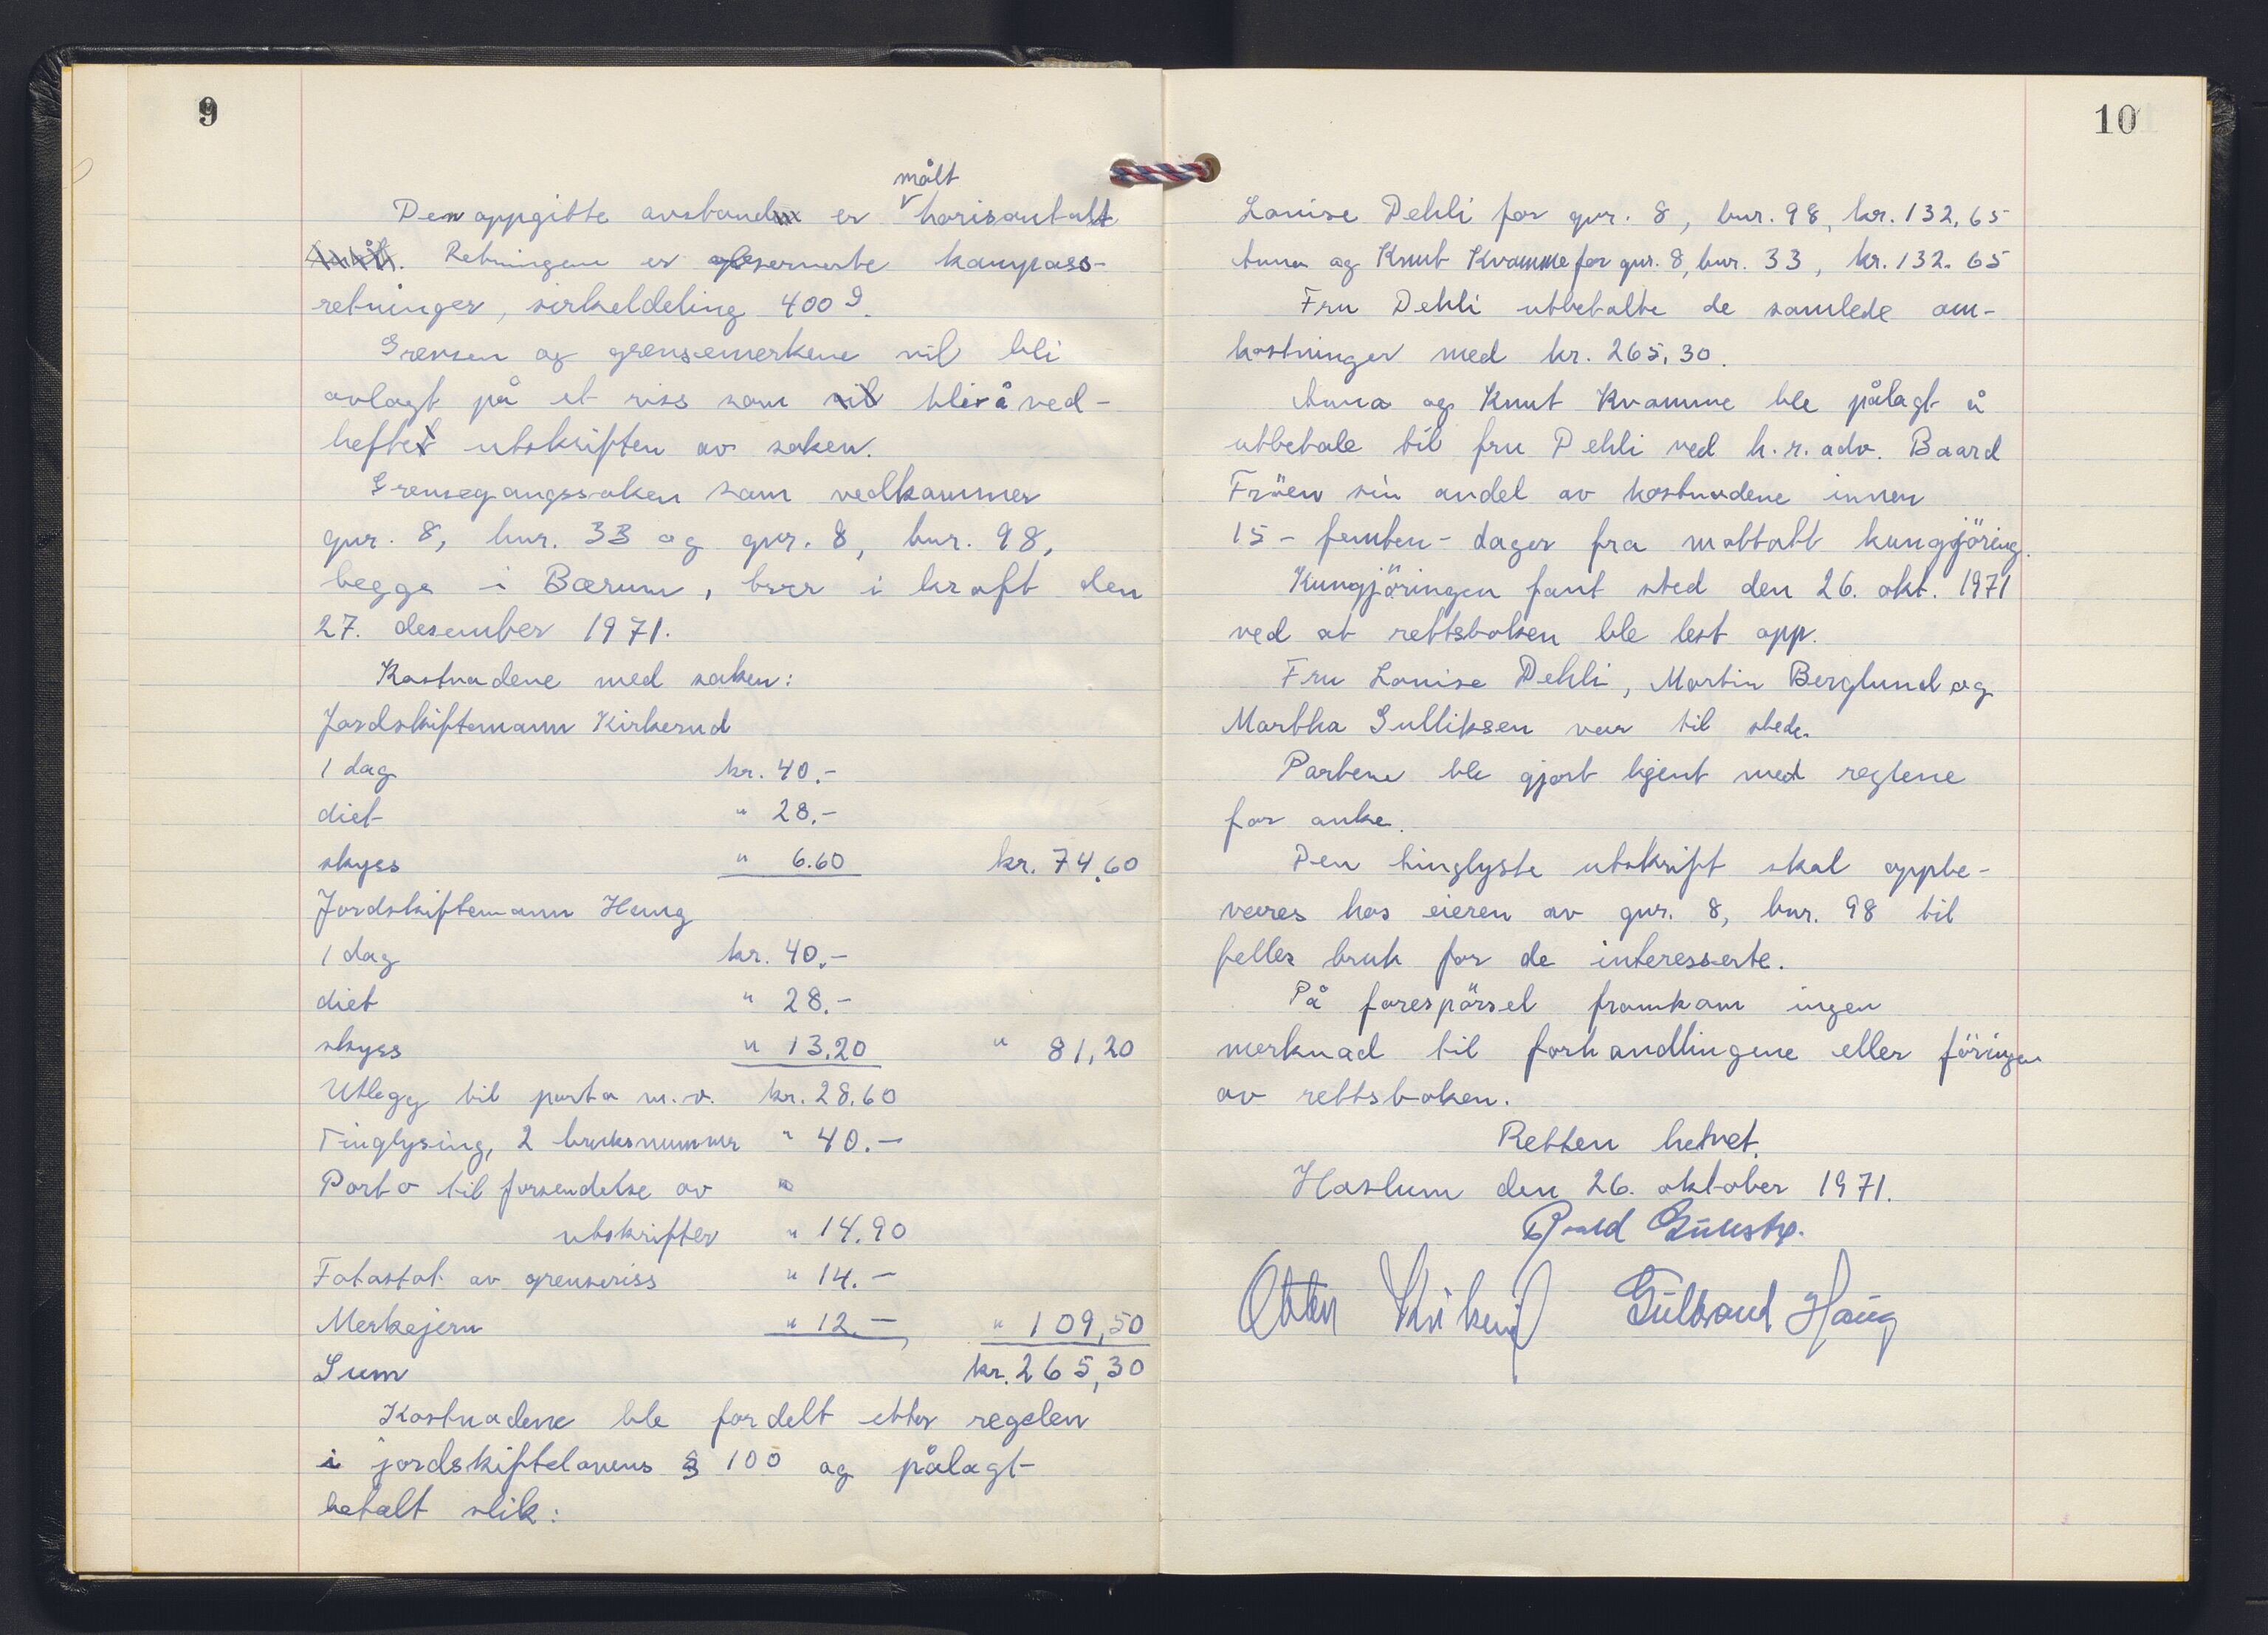 9
målt
Den oppgitte avstand er horisontalt
Retningen er observerte kompass-
retninger, sirkeldeling 400 g.
Grensen og grensemerkene vil bli
avlagt på et riss som vil blir å ved-
hefte utskriften av saken.
Grensegangssaken som vedkommer
gnr. 8, bnr. 33 og gnr. 8, bnr. 98,
begge i Bærum, trer i kraft den
27. desember 1971.
Kostnadene med saken:
Jordskiftemann Kirkerud
1 dag kr. 40.-
diet " 28.-
skyss " 6.60 kr. 74,60
Jordskiftemann Haug
1 dag kr. 40.-
diet " 28.-
skyss " 13,20 " 81,20
Utlegg til porto m.v. kr. 28,60
Tinglysing, 2 bruksnummer " 40.-
Porto til forsendelse av "
utskrifter " 14,90
Fotostat av grenseriss " 14.-
Merkejern " 12.- " 109,50
Sum kr. 265,30
Kostnadene ble fordelt etter regelen
i jordskiftelovens § 100 og pålagt
betalt slik:
10
Louise Dehli for gnr. 8, bnr. 98, kr. 132,65
Anna og Knut Kvamme for gnr. 8, bnr. 33, kr. 132.65
Fru Dehli utbetalte de samlede om-
kostninger med kr. 265,30.
Anna og Knut Kvamme ble pålagt å
utbetale til fru Dehli ved h.r.adv. Baard
Fröen sin andel av kostnadene innen
15 - femten - dager fra mottatt kungjöring.
Kungjöringen fant sted den 26. okt. 1971
ved at rettsboken ble lest opp.
Fru Louise Dehli, Martin Berglund og
Martha Gulliksen var til stede.
Partene ble gjort kjent med reglene
for anke.
Den tinglyste utskrift skal oppbe-
vares hos eieren av gnr. 8, bnr. 98 til
felles bruk for de interesserte.
På forespörsel framkom ingen
merknad til forhandlingene eller föringen
av rettsboken.
Retten hevet.
Haslum den 26. oktober 1971.
Kirkerud Gulbrand Haug